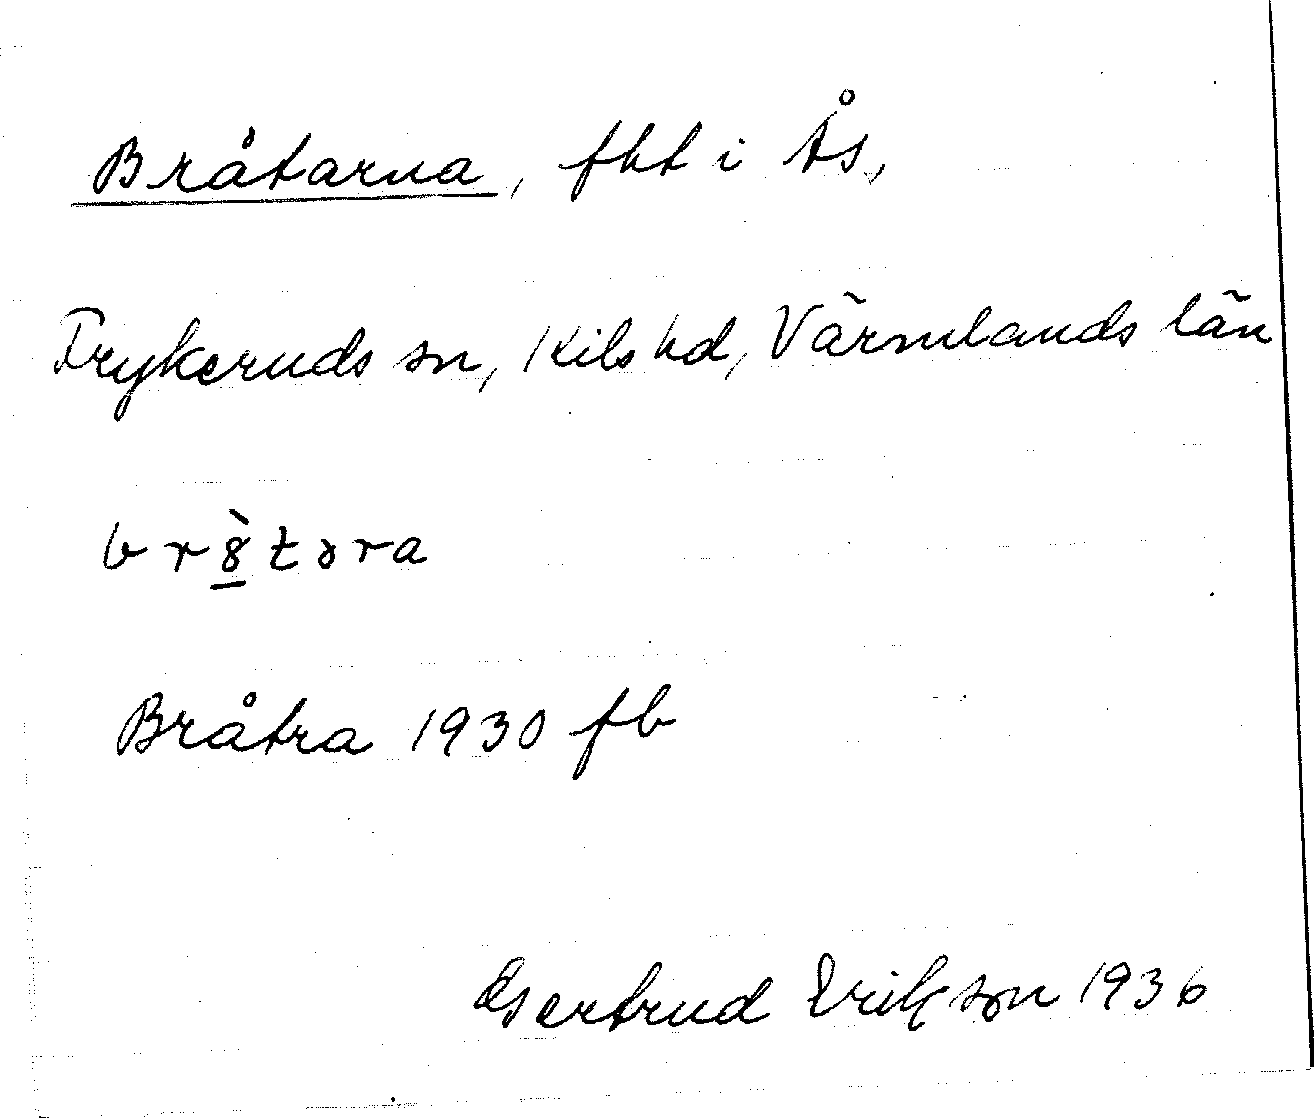 Bråtarna, fht i Ås,
Frykeruds sn, Kils hd, Värmlands län
br8̲̀tɔra
Bråtra 1930 fb
Gertrud Erikson 1936